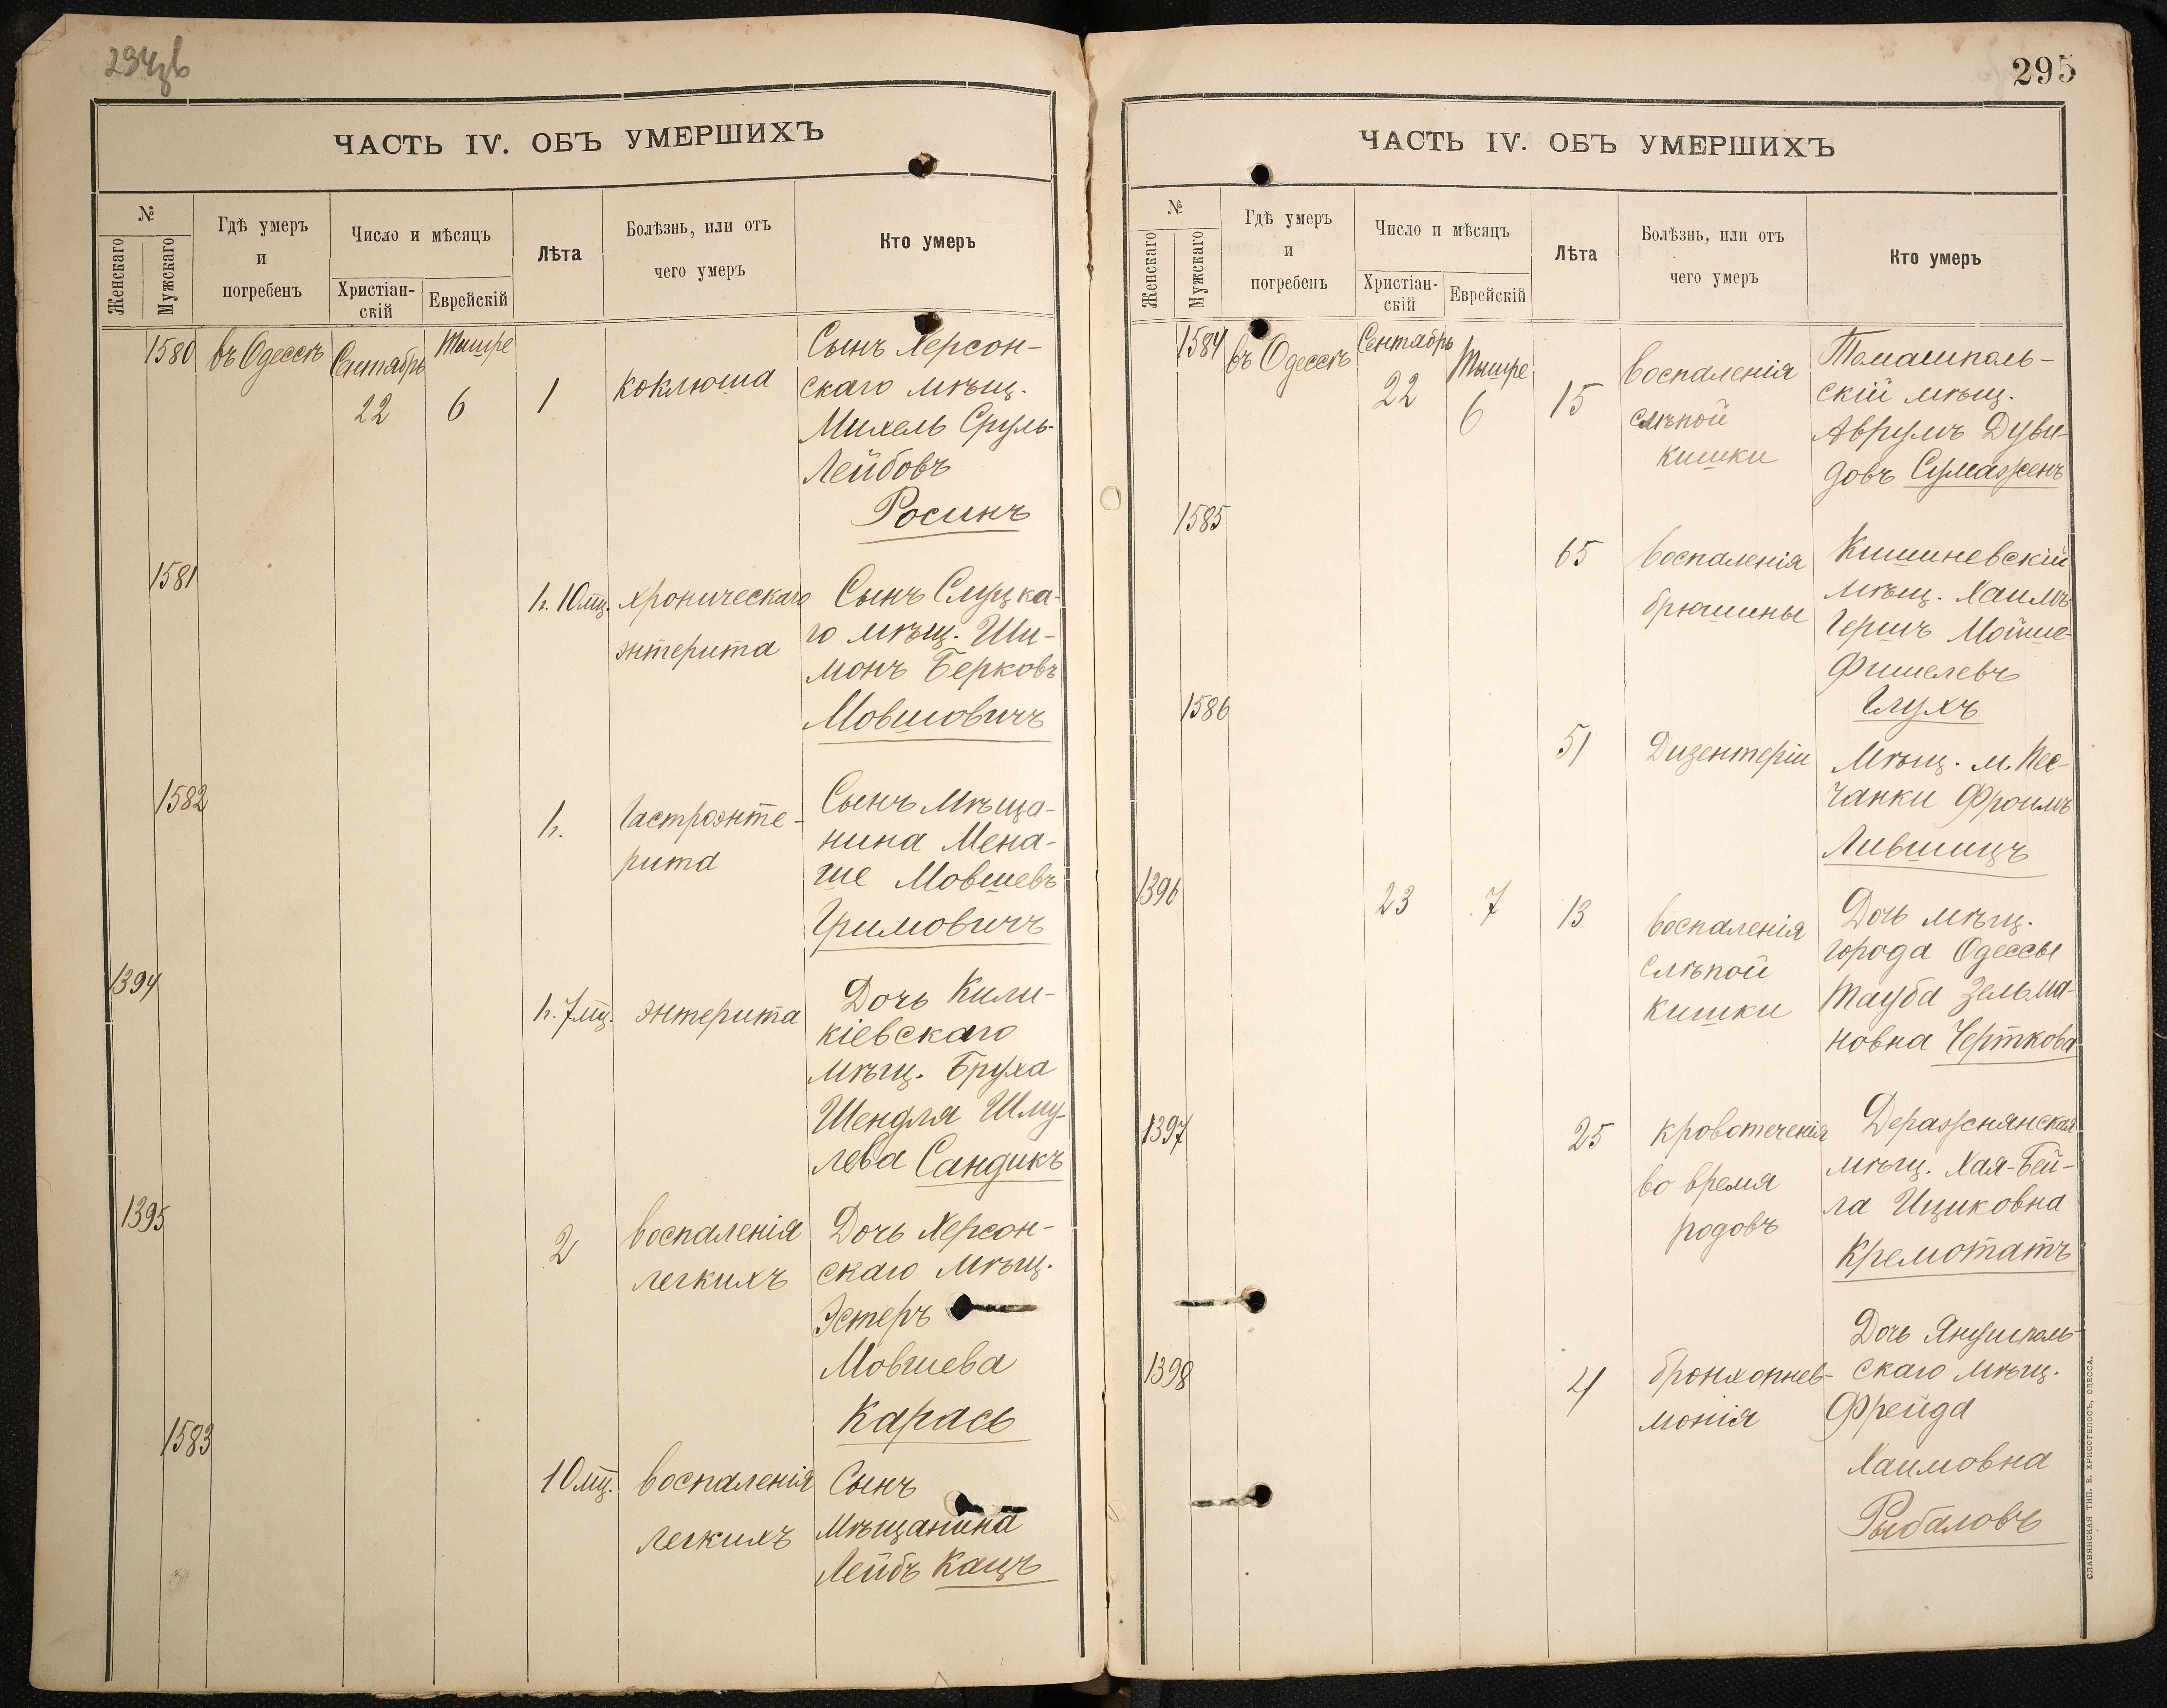 294об
ЧАСТЬ IV. ОБЪ УМЕРШИХЪ
№
Женскаго
Мужскаго
Гдѣ умеръ
и
погребенъ
Число и мѣсяцъ
Христіан-
скій
Еврейскій
Лѣта
Болѣзнь, или отъ
чего умеръ
Кто умеръ
1580 въ Одессѣ Сентябрь 22 Тишре 6 1 коклюша
Сынъ Херсон-
скаго мѣщ.
Михель Сруль-
Лейбовъ
Росинъ
1581 1г. 10мц. хроническаго
энтерита
Сынъ Слуцка-
го мѣщ. Ши-
монъ Берковъ
Мовшовичъ
1582 1г. Гастроэнте-
рита
Сынъ Мѣща-
нина Мена-
ше Мовшевъ
Гримовичъ
1394 1г. 7мц. энтерита
Дочь Кили-
кіевскаго
мѣщ. Бруха
Шендля Шму-
лева Сандикъ
1395 2 воспаленія
легкихъ
Дочь Херсон-
скаго мѣщ.
Эстеръ
Мовшева
Карась
1583 10мц. воспаленія
легкихъ
Сынъ
Мѣщанина
Лейбъ Кацъ
295
ЧАСТЬ IV. ОБЪ УМЕРШИХЪ
№
Женскаго
Мужскаго
Гдѣ умеръ
и
погребенъ
Число и мѣсяцъ
Христіан-
скій
Еврейскій
Лѣта
Болѣзнь, или отъ
чего умеръ
Кто умеръ
1584 въ Одессѣ Сентябрь 22 Тишре 6 15 воспаленія
слѣпой
кишки
Томашполь-
скій мѣщ.
Аврумъ Дуви-
довъ Сумаженъ
1585 65 воспаленія
брюшины
Кишиневскій
мѣщ. Хаимъ
Гершъ Мойше-
Фишелевъ
Глухъ
1586 51 Дизентеріи
Мѣщ. м. Пес-
чанки Фроимъ
Лившицъ
1396 23 7 13 воспаленія
слѣпой
кишки
Дочь мѣщ.
города Одессы
Тауба Зельма-
новна Черткова
1397 25 кровотеченія
во время
родовъ
Деражнянская
мѣщ. Хая-Бей-
ла Ицковна
Кремотатъ
1398 4 бронхопнев-
монія
Дочь Янушполь-
скаго мѣщ.
Фрейда
Хаимовна
Рыбаловъ
СЛАВЯНСКАЯ ТИП. Е. ХРИСОГЕЛОСЪ, ОДЕССА.